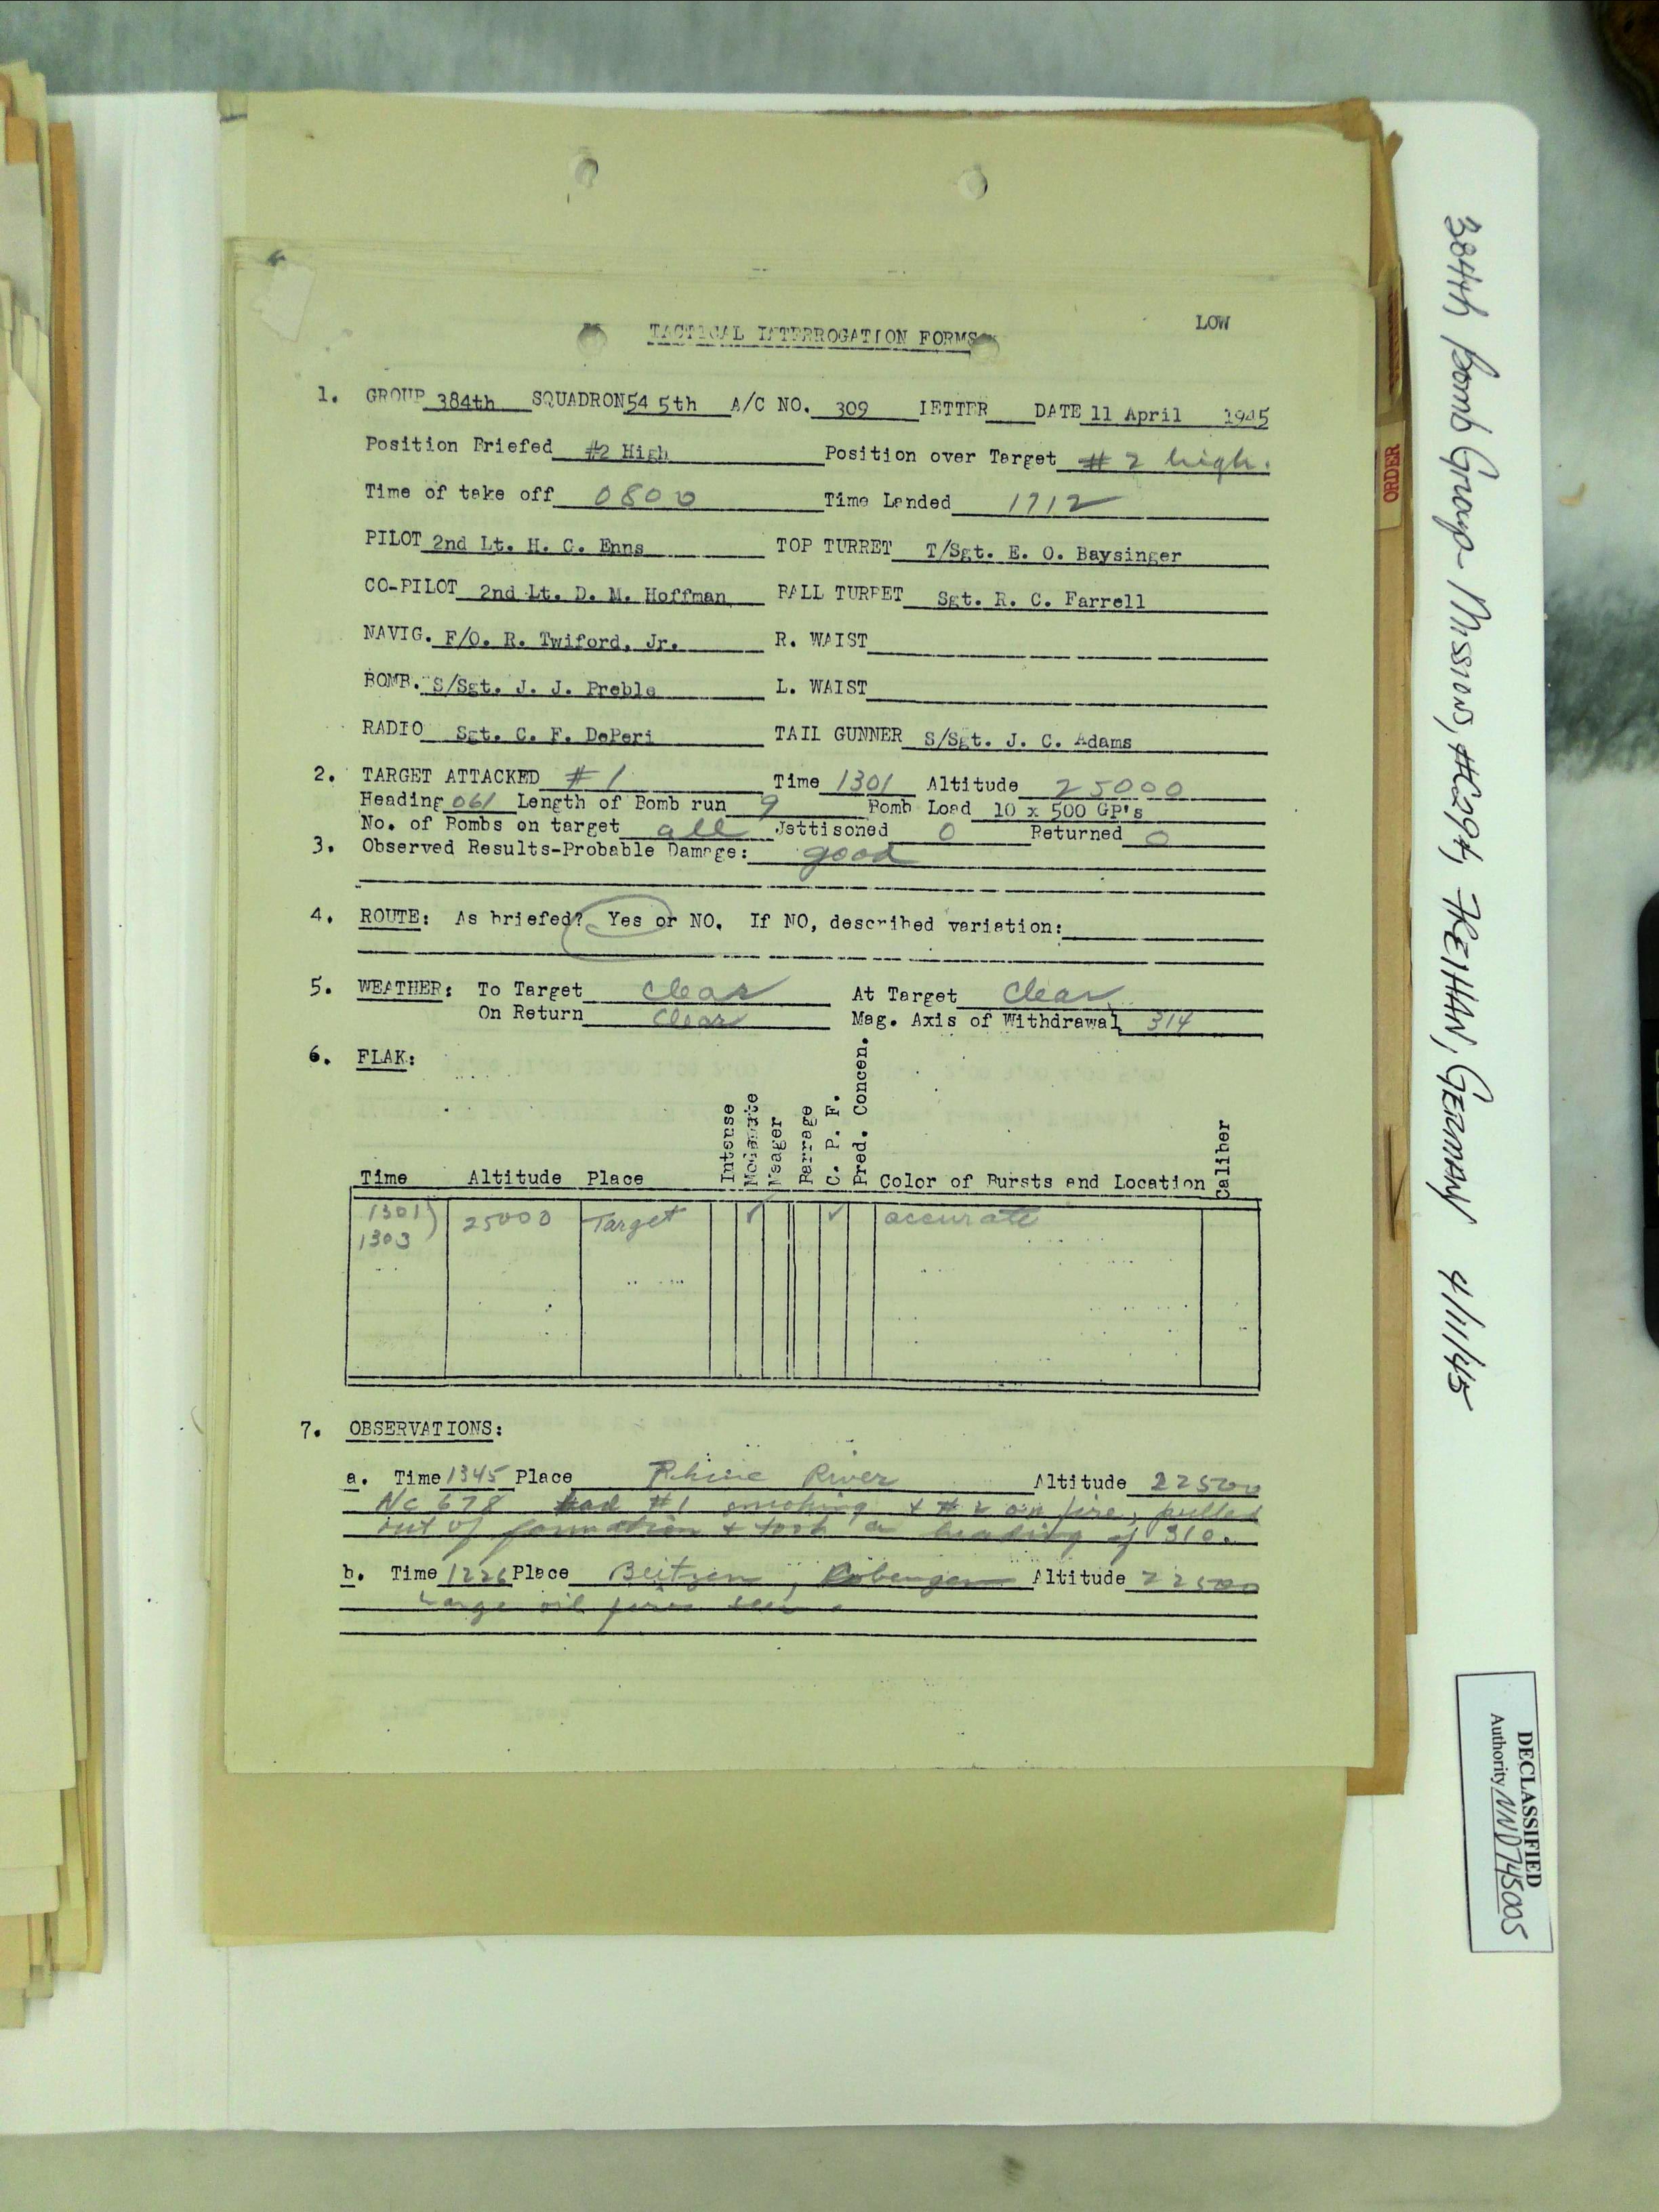 LOW
TACTICAL INTERROGATION FORMS
1. GROUP 384th SQUADRON 545th A/C NO. 309 LETTER DATE 11 April 1945
Position Briefed #2 High Position over Target # 2 high.
Time of take off 0800 Time Landed 1712
PILOT 2nd Lt. H. C. Enns TOP TURRET T/Sgt. E. O. Baysinger
CO-PILOT 2nd Lt. D. M. Hoffman BALL TURRET Sgt. R. C. Farrell
NAVIG. F/O. R. Twiford, Jr. R. WAIST
BOMB. S/Sgt. J. J. Preble L. WAIST
RADIO Sgt. C. F. DePeri TAIL GUNNER S/Sgt. J. C. Adams
2. TARGET ATTACKED # 1 Time 1301 Altitude 25000
Heading 061 Length of Bomb run 9 Bomb Load 10 x 500 GP's
No. of Bombs on target all Jettisoned 0 Returned 0
3. Observed Results-Probable Damage: good
4. ROUTE: As briefed? Yes or NO. If NO, described variation:
5. WEATHER: To Target Clear At Target Clear
On Return Clear Mag. Axis of Withdrawal 314
6. FLAK:
Time Altitude Place Intense Moderate Meager Barrage C. P. F. Pred. Concen. Color of Bursts and Location Caliber
1301) 25000 Target ✓ ✓ accurate
1303
7. OBSERVATIONS:
a. Time 1345 Place Rhine River Altitude 22500
A/c 678 had #1 smoking + # 2 on fire, pulled
out of formation + took a heading of 310.
b. Time 1226 Place Altitude 22500
Large oil fires seen.
ORDER
384th Bomb Group Mission, #294, GERMANY 4/11/45
DECLASSIFIED
Authority NND745005